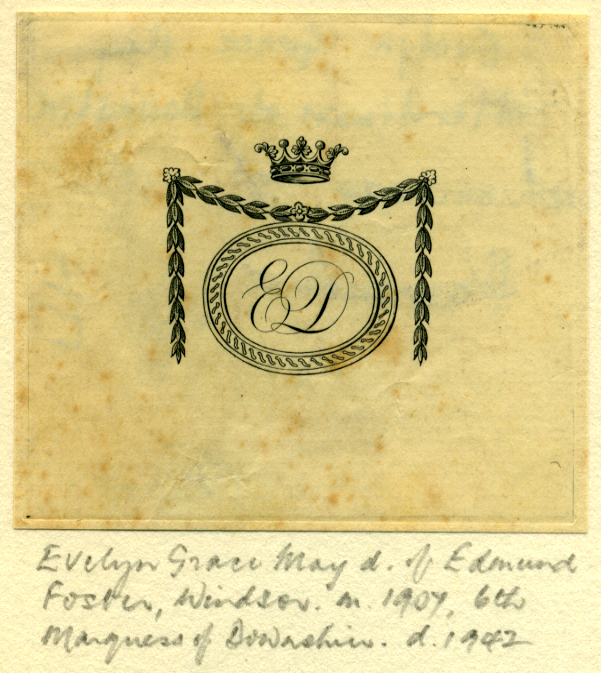 ED
Evelyn Grace May d. of Edmund
Foster, Windsor. m. 1907, 6th
Marquess of Downshire. d. 1942